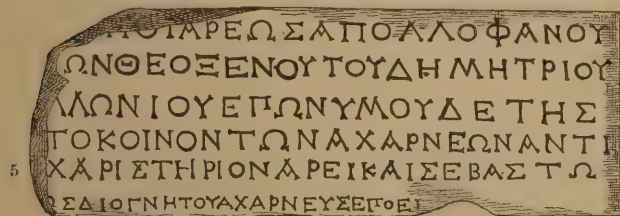 ΑΡΕΩΣΑΠΟΑΛΟΦΑΝΟΥ
ΩΝΘΕΟΞΕΝΟΥΤΟΥΔΗΜΗΤΡΙΟΥ
ΛΛΩΝΙΟΥΕΠΩΝΥΜΟΥΔΕΤΗΣ
ΤΟΚΟΙΝΟΝΤΩΝΑΧΑΡΝΕΩΝΑΝΤΙ
5 ΧΑΡΙΣΤΗΡΙΟΝΑΡΕΙΚΑΙΣΕΒΑΣΤΩ
ΩΣΔΙΟΓΝΗΤΟΥΑΧΑΡΝΕΥΣΕΠΟΕΙ